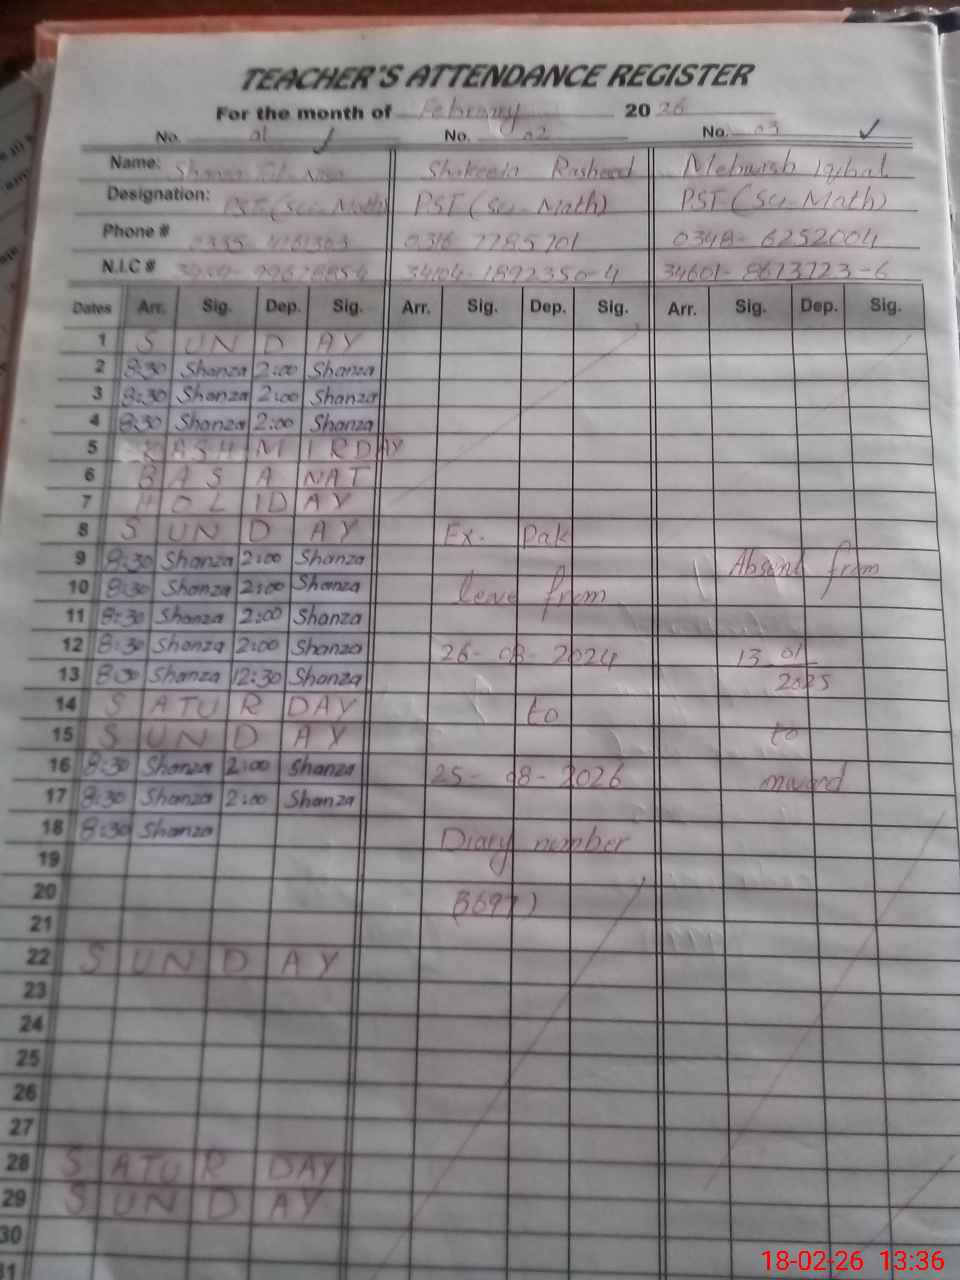 TEACHER'S ATTENDANCE REGISTER
For the month of February 2026
No. 01 No. 02 No. 03
Name: Shakeela Rasheed Mehwish Iqbal
Designation: PST (Sci-Math) PST (Sci-Math) PST (Sci-Math)
Phone # 0316 7785701 0348-6252004
N.I.C # 34104-1892350-4 34601-8673723-6
Dates Arr. Sig. Dep. Sig. Arr. Sig. Dep. Sig. Arr. Sig. Dep. Sig.
1 SUNDAY
2 8:30 Shanza 2:00 Shanza
3 8:30 Shanza 2:00 Shanza
4 8:30 Shanza 2:00 Shanza
5 KASHMIRDAY
6 BASANAT
7 HOLIDAY
8 SUNDAY Ex. Pak
9 8:30 Shanza 2:00 Shanza Absent from
10 8:30 Shanza 2:00 Shanza leave from
11 8:30 Shanza 2:00 Shanza
12 8:30 Shanza 2:00 Shanza 26-08-2024 13 01
13 8:30 Shanza 12:30 Shanza 2025
14 SATURDAY to
15 SUNDAY to
16 8:30 Shanza 2:00 Shanza 25-08-2026 onward
17 8:30 Shanza 2:00 Shanza
18 8:30 Shanza Diary number
19
20 (3697)
21
22 SUNDAY
23
24
25
26
27
28 SATURDAY
29 SUNDAY
30
31
18-02-26 13:36